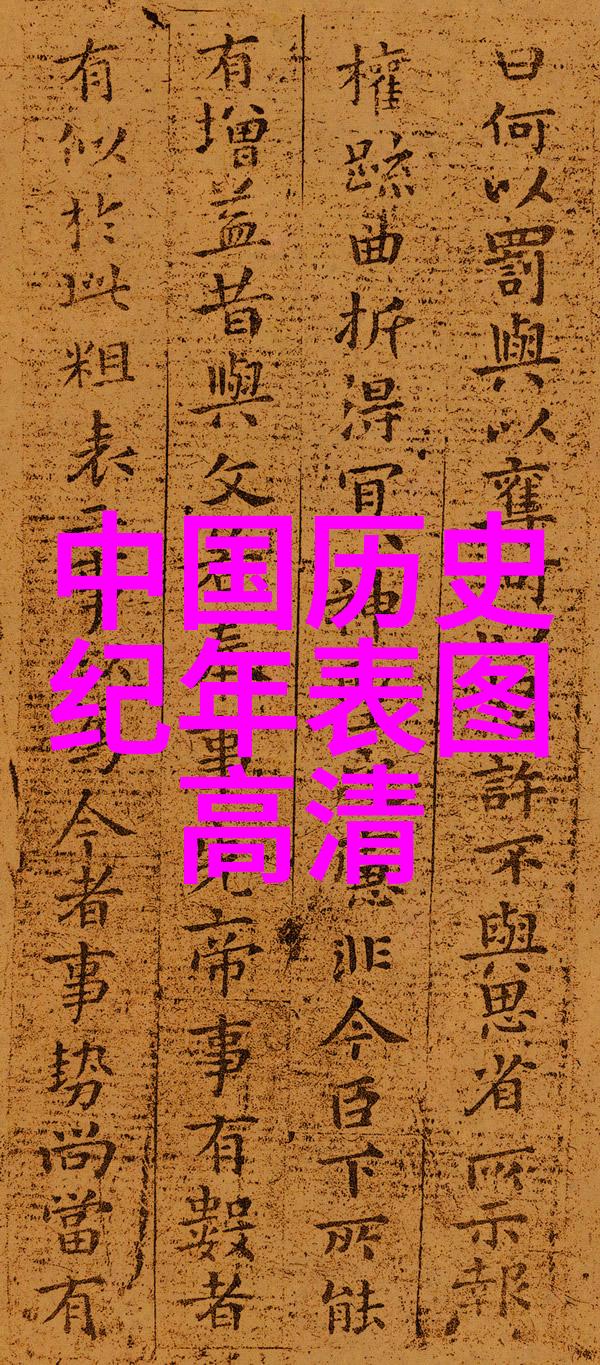 中国历史
纪年表图
高清
曰何以罰與以奪 許不與思省所示報
權疏曲折得宜 神 非今臣下所能
有增益昔與文 事 帝事有數者
有似於此粗表 今者事勢尚當有